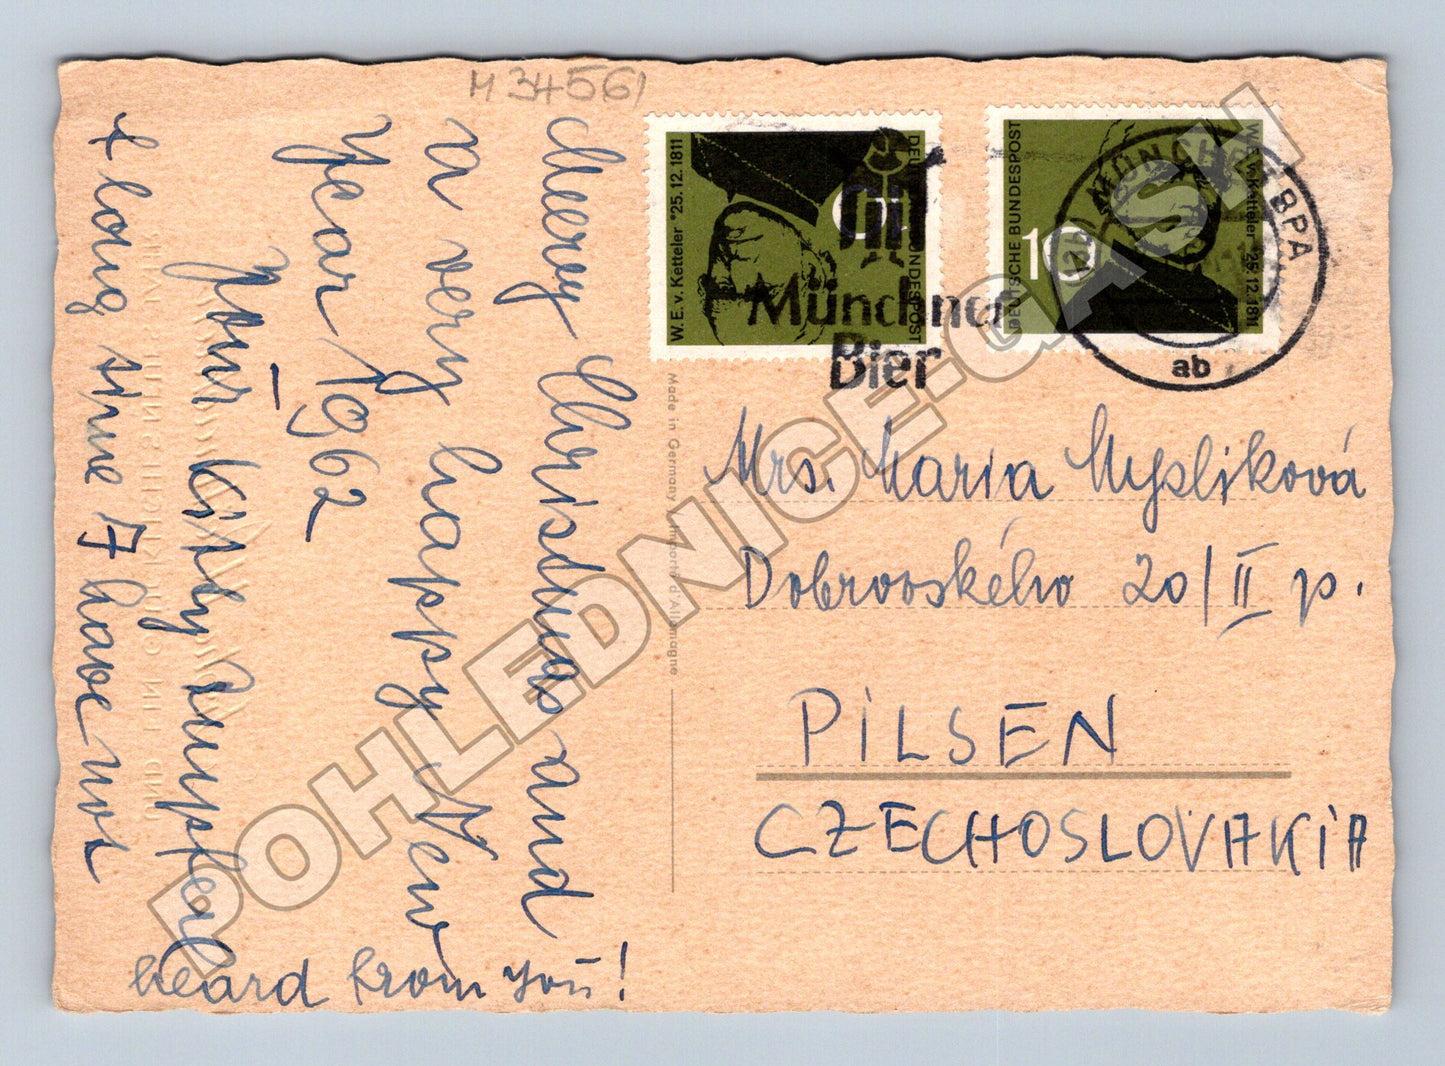 M 34561
Merry Christmas and
a very happy New
Year 1962
Your Kitty
A long time I have not
heard from you!
Made in Germany
W. E. v. Ketteler *25.12.1811
DEUTSCHE BUNDESPOST
W. E. v. Ketteler *25.12.1811
DEUTSCHE BUNDESPOST
10
Münchner
Bier
MÜNCHEN BPA
ab
Mrs. Maria Myslíková
Dobrovského 20/II p.
PILSEN
CZECHOSLOVAKIA
POHLEDNICE-GASH